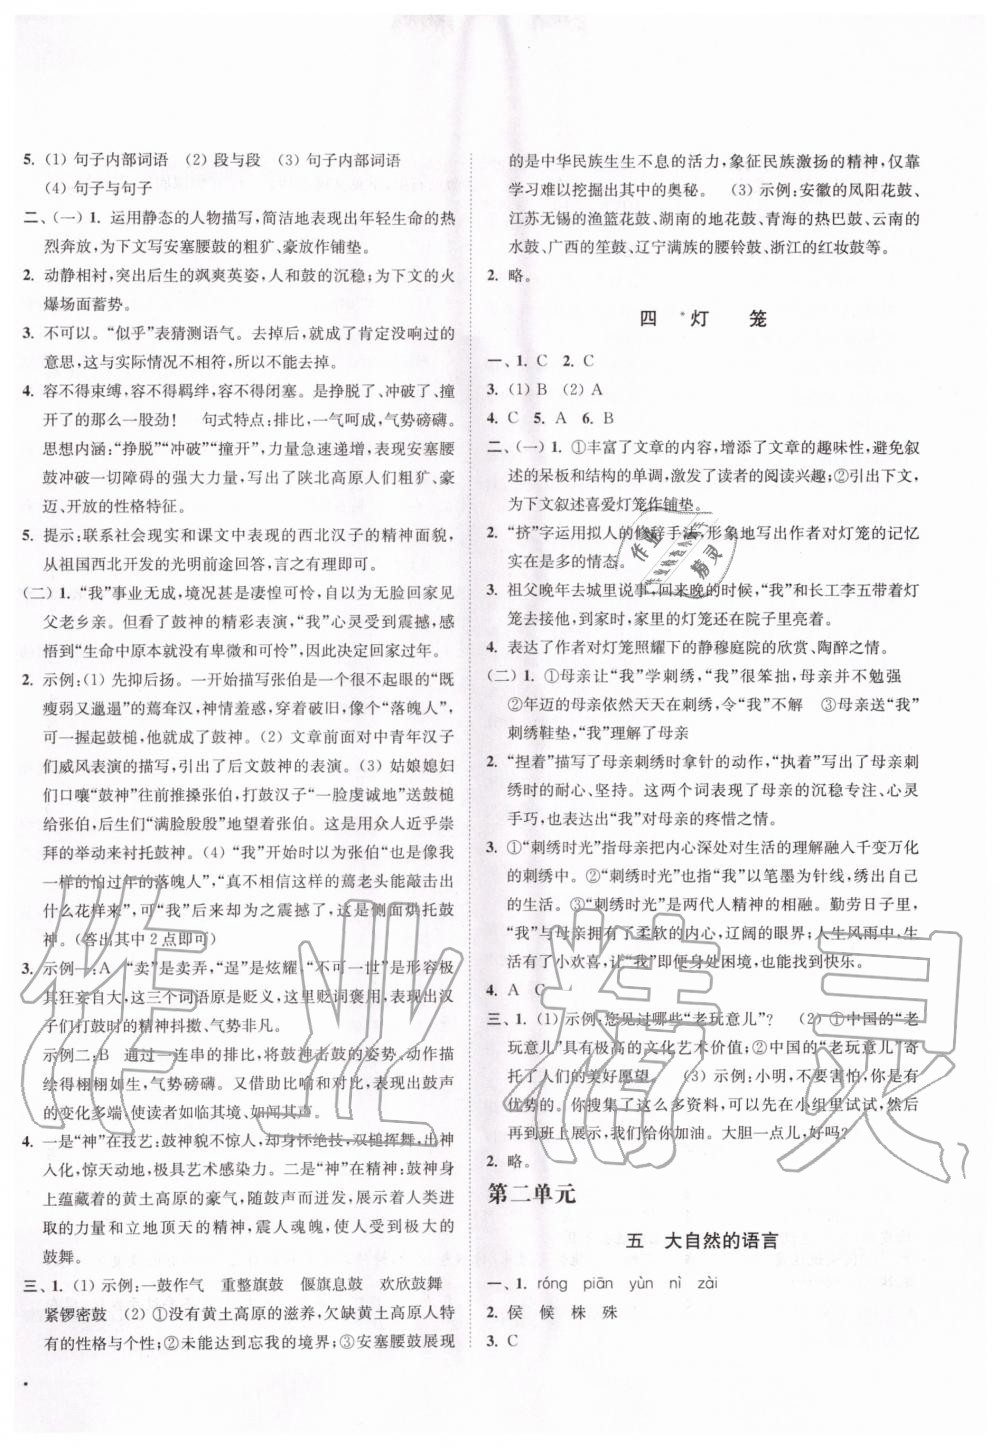 5. (1) 句子内部词语　(2) 段与段　(3) 句子内部词语
(4) 句子与句子
二、(一) 1. 运用静态的人物描写,简洁地表现出年轻生命的热
烈奔放,为下文写安塞腰鼓的粗犷、豪放作铺垫。
2. 动静相衬,突出后生的飒爽英姿,人和鼓的沉稳;为下文的火
爆场面蓄势。
3. 不可以。“似乎”表猜测语气。去掉后,就成了肯定没听过的
意思,这与实际情况不相符,所以不能去掉。
4. 容不得束缚,容不得羁绊,容不得闭塞。是挣脱了、冲破了、撞
开了的那么一股劲!　句式特点:排比,一气呵成,气势磅礴。
思想内涵:“挣脱”“冲破”“撞开”,力量急速递增,表现安塞腰
鼓冲破一切障碍的强大力量,写出了陕北高原人粗犷、豪
迈、开放的性格特征。
5. 提示:联系社会现实和课文中表现的西北汉子的精神面貌,
从祖国西北开发的光明前途回答,言之有理即可。
(二) 1. “我”事业无成,境况甚是凄惶可怜,自以为无脸回家见
父老乡亲。但看了鼓神的精彩表演,“我”心灵受到震撼,感
悟到“生命中原本就没有卑微和可怜”,因此决定回家过年。
2. 示例:(1) 先抑后扬。一开始描写张伯是一个很不起眼的“既
瘦弱又邋遢”的蔫耷汉,神情羞惑,穿着破旧,像个“落魄人”,可
一握起鼓槌,他就成了鼓神。(2) 文章前面对中青年汉子
们威风表演的描写,引出了后文鼓神的表演。(3) 姑娘媳妇
们口嚷“鼓神”往前推搡张伯,打鼓汉子“一脸虔诚地”递鼓槌
给张伯,后生们“满脸殷殷”地望着张伯。这是用众人近乎崇
拜的举动来衬托鼓神。(4) “我”开始时以为张伯“也是像我
一样的怕过年的落魄人”,“真不相信这样的蔫老头能敲击出
什么花样来”,可“我”后来却为之震撼了,这是侧面烘托鼓
神。(答出其中2点即可)
3. 示例一:A　“卖”是卖弄,“逞”是炫耀,“不可一世”是形容极
其狂妄自大,这三个词语原是贬义,这里贬词褒用,表现出汉
子们打鼓时的精神抖擞、气势非凡。
示例二:B　通过一连串的排比,将鼓神击鼓的姿势、动作描
绘得栩栩如生,气势磅礴。又借助比喻和对比,表现出鼓声
的变化多端,使读者如临其境、如闻其声。
4. 一是“神”在技艺:鼓神貌不惊人,却身怀绝技,双槌挥舞,出神
入化,惊天动地,极具艺术感染力。二是“神”在精神:鼓神身
上蕴藏着的黄土高原的豪气,随鼓声而迸发,激发着人类进
取的力量和立地顶天的精神,震人魂魄,使人受到极大的
鼓舞。
三、1. (1) 示例:一鼓作气　重整旗鼓　偃旗息鼓　欢欣鼓舞
紧锣密鼓　(2) ①没有黄土高原的滋养,欠缺黄土高原人特
有的性格与个性;②未能达到忘我的境界;③安塞腰鼓展现
的是中华民族生生不息的活力,象征民族激扬的精神,仅靠
学习难以挖掘出其中的奥秘。　(3) 示例:安徽的凤阳花鼓、
江苏无锡的渔篮花鼓、湖南的地花鼓、青海的热巴鼓、云南的
水鼓、广西的笙鼓、辽宁满族的腰铃鼓、浙江的红妆鼓等。
2. 略。
四　*灯　笼
一、1. C　2. C
3. (1) B　(2) A
4. C　5. A　6. B
二、(一) 1. ①丰富了文章的内容,增添了文章的趣味性,避免叙
述的呆板和结构的单调,激发了读者的阅读兴趣;②引出下文,
为下文叙述喜爱灯笼作铺垫。
2. “挤”字运用拟人的修辞手法,形象地写出作者对灯笼的记忆
实在是多的情态。
3. 祖父晚年去城里说事,回来晚的时候,“我”和长工李五带着灯
笼去接祖父;到家时,家里的灯笼还在院子里亮着。
4. 表达了作者对灯笼照耀下的静穆庭院的欣赏、陶醉之情。
(二) 1. ①母亲让“我”学刺绣,“我”很笨拙,母亲并不勉强
②年迈的母亲依然天天在刺绣,令“我”不解　③母亲送“我”
刺绣鞋垫,“我”理解了母亲
2. “捏着”描写了母亲刺绣时拿针的动作,“执着”写出了母亲刺
绣时的耐心、坚持。这两个词表现了母亲的沉稳专注、心灵
手巧,也表达出“我”对母亲的疼惜之情。
3. ①“刺绣时光”指母亲把内心深处对生活的理解融入千变万化
的刺绣中。②“刺绣时光”也指“我”以笔墨为针线,绣出自己
的生活。③“刺绣时光”是两代人精神的相融。勤劳日子里,
“我”与母亲拥有了柔软的内心,辽阔的眼睛,人生风雨中,生
活困苦中,因此,“我”即便身处困境,也能找到快乐。
4. A　C
三、1. (1) 示例:您见过哪些“老玩意儿”?　(2) ①中国的“老
玩意儿”具有极高的文化艺术价值;②中国的“老玩意儿”寄
托了人们的美好愿望　(3) 示例:小明,不要害怕,你是有
优势的。你搜集了这么多资料,可以先在小组里试试,然后
再到班上展示,我们给你加油。大胆一点儿,好吗?
2. 略。
第二单元
五　大自然的语言
一、1. róng　piān　yùn　nì　zài
2. 侯　候　株　殊
3. C
作业精灵
作业精灵